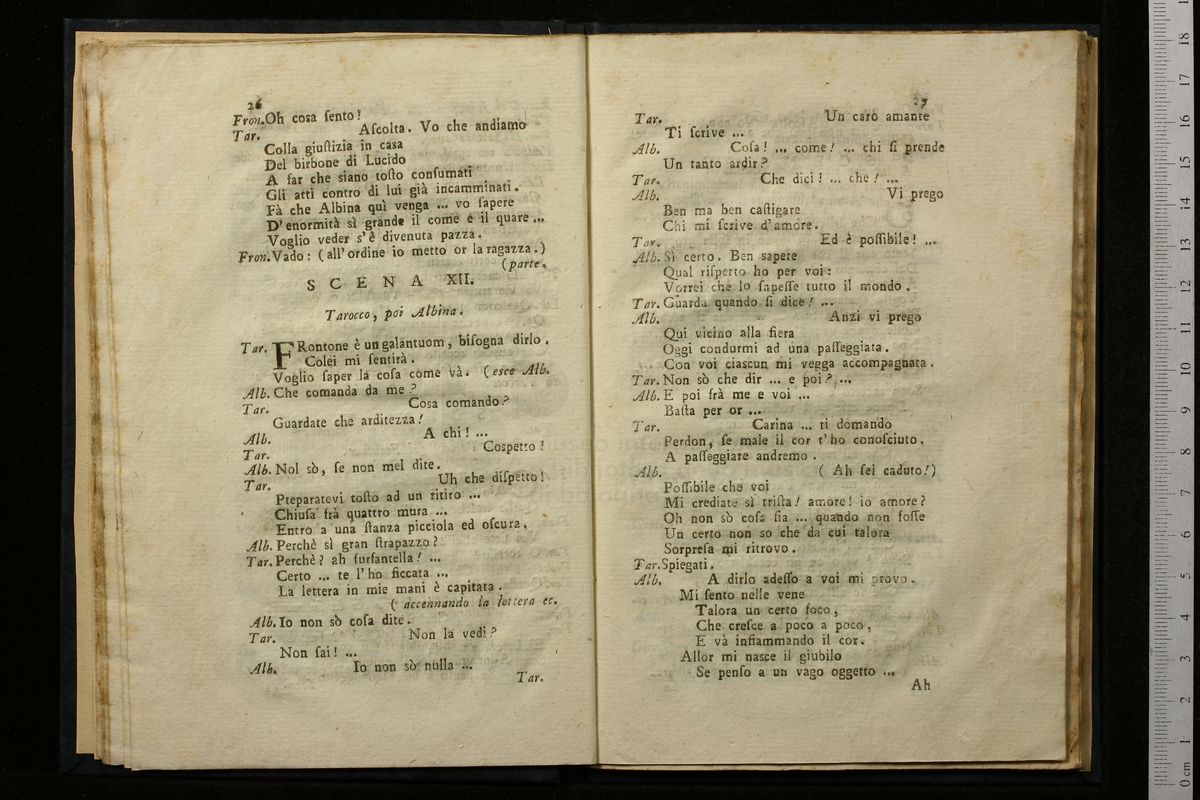 26
Fron. Oh cosa ſento!
Tar. Aſcolta. Vo che andiamo
Colla giuſtizia in casa
Del birbone di Lucido
A far che siano toſto conſumati
Gli atti contro di lui già incamminati.
Fà che Albina quì venga ... vo ſapere
D'enormità sì grande il come e il quare ...
Voglio veder s'è divenuta pazza.
Fron. Vado: (all'ordine io metto or la ragazza.)
(parte.
SCENA XII.
Tarocco, poi Albina.
Tar. FRontone è un galantuom, biſogna dirlo.
Colei mi ſentirà.
Voglio ſaper la coſa come và. (esce Alb.
Alb. Che comanda da me?
Tar. Cosa comando?
Guardate che arditezza!
Alb. A chi! ...
Tar. Cospetto!
Alb. Nol sò, ſe non mel dite.
Tar. Uh che diſpetto!
Pteparatevi toſto ad un ritiro ...
Chiuſa frà quattro mura ...
Entro a una ſtanza picciola ed oſcura.
Alb. Perchè sì gran ſtrapazzo?
Tar. Perchè? ah furfantella! ...
Certo ... te l'ho ficcata ...
La lettera in mie mani è capitata.
( accennando la lettera ec.
Alb. Io non sò coſa dite.
Tar. Non la vedi?
Non ſai! ...
Alb. Io non sò nulla ...
Tar.
27
Tar. Un caro amante
Ti ſcrive ...
Alb. Coſa! ... come! ... chi ſi prende
Un tanto ardir?
Tar. Che dici! ... che! ...
Alb. Vi prego
Ben ma ben caſtigare
Chi mi ſcrive d'amore.
Tar. Ed è poſſibile! ...
Alb. Sì certo. Ben sapete
Qual riſpetto ho per voi:
Vorrei che lo ſapeſſe tutto il mondo.
Tar. Guarda quando ſi dice! ...
Alb. Anzi vi prego
Qui vicino alla fiera
Oggi condurmi ad una paſſeggiata.
Con voi ciascun mi vegga accompagnata.
Tar. Non sò che dir ... e poi? ...
Alb. E poi frà me e voi ...
Baſta per or ...
Tar. Carina ... ti domando
Perdon, ſe male il cor t'ho conoſciuto.
A paſſeggiare andremo.
Alb. ( Ah ſei caduto!)
Poſſibile che voi
Mi crediate sì triſta! amore! io amore?
Oh non sò coſa ſia ... quando non foſſe
Un certo non so che da cui talora
Sorpreſa mi ritrovo.
Tar. Spiegati.
Alb. A dirlo adeſſo a voi mi provo.
Mi ſento nelle vene
Talora un certo foco,
Che creſce a poco a poco,
E và infiammando il cor.
Allor mi nasce il giubilo
Se penſo a un vago oggetto ...
Ah
0 cm 1 2 3 4 5 6 7 8 9 10 11 12 13 14 15 16 17 18